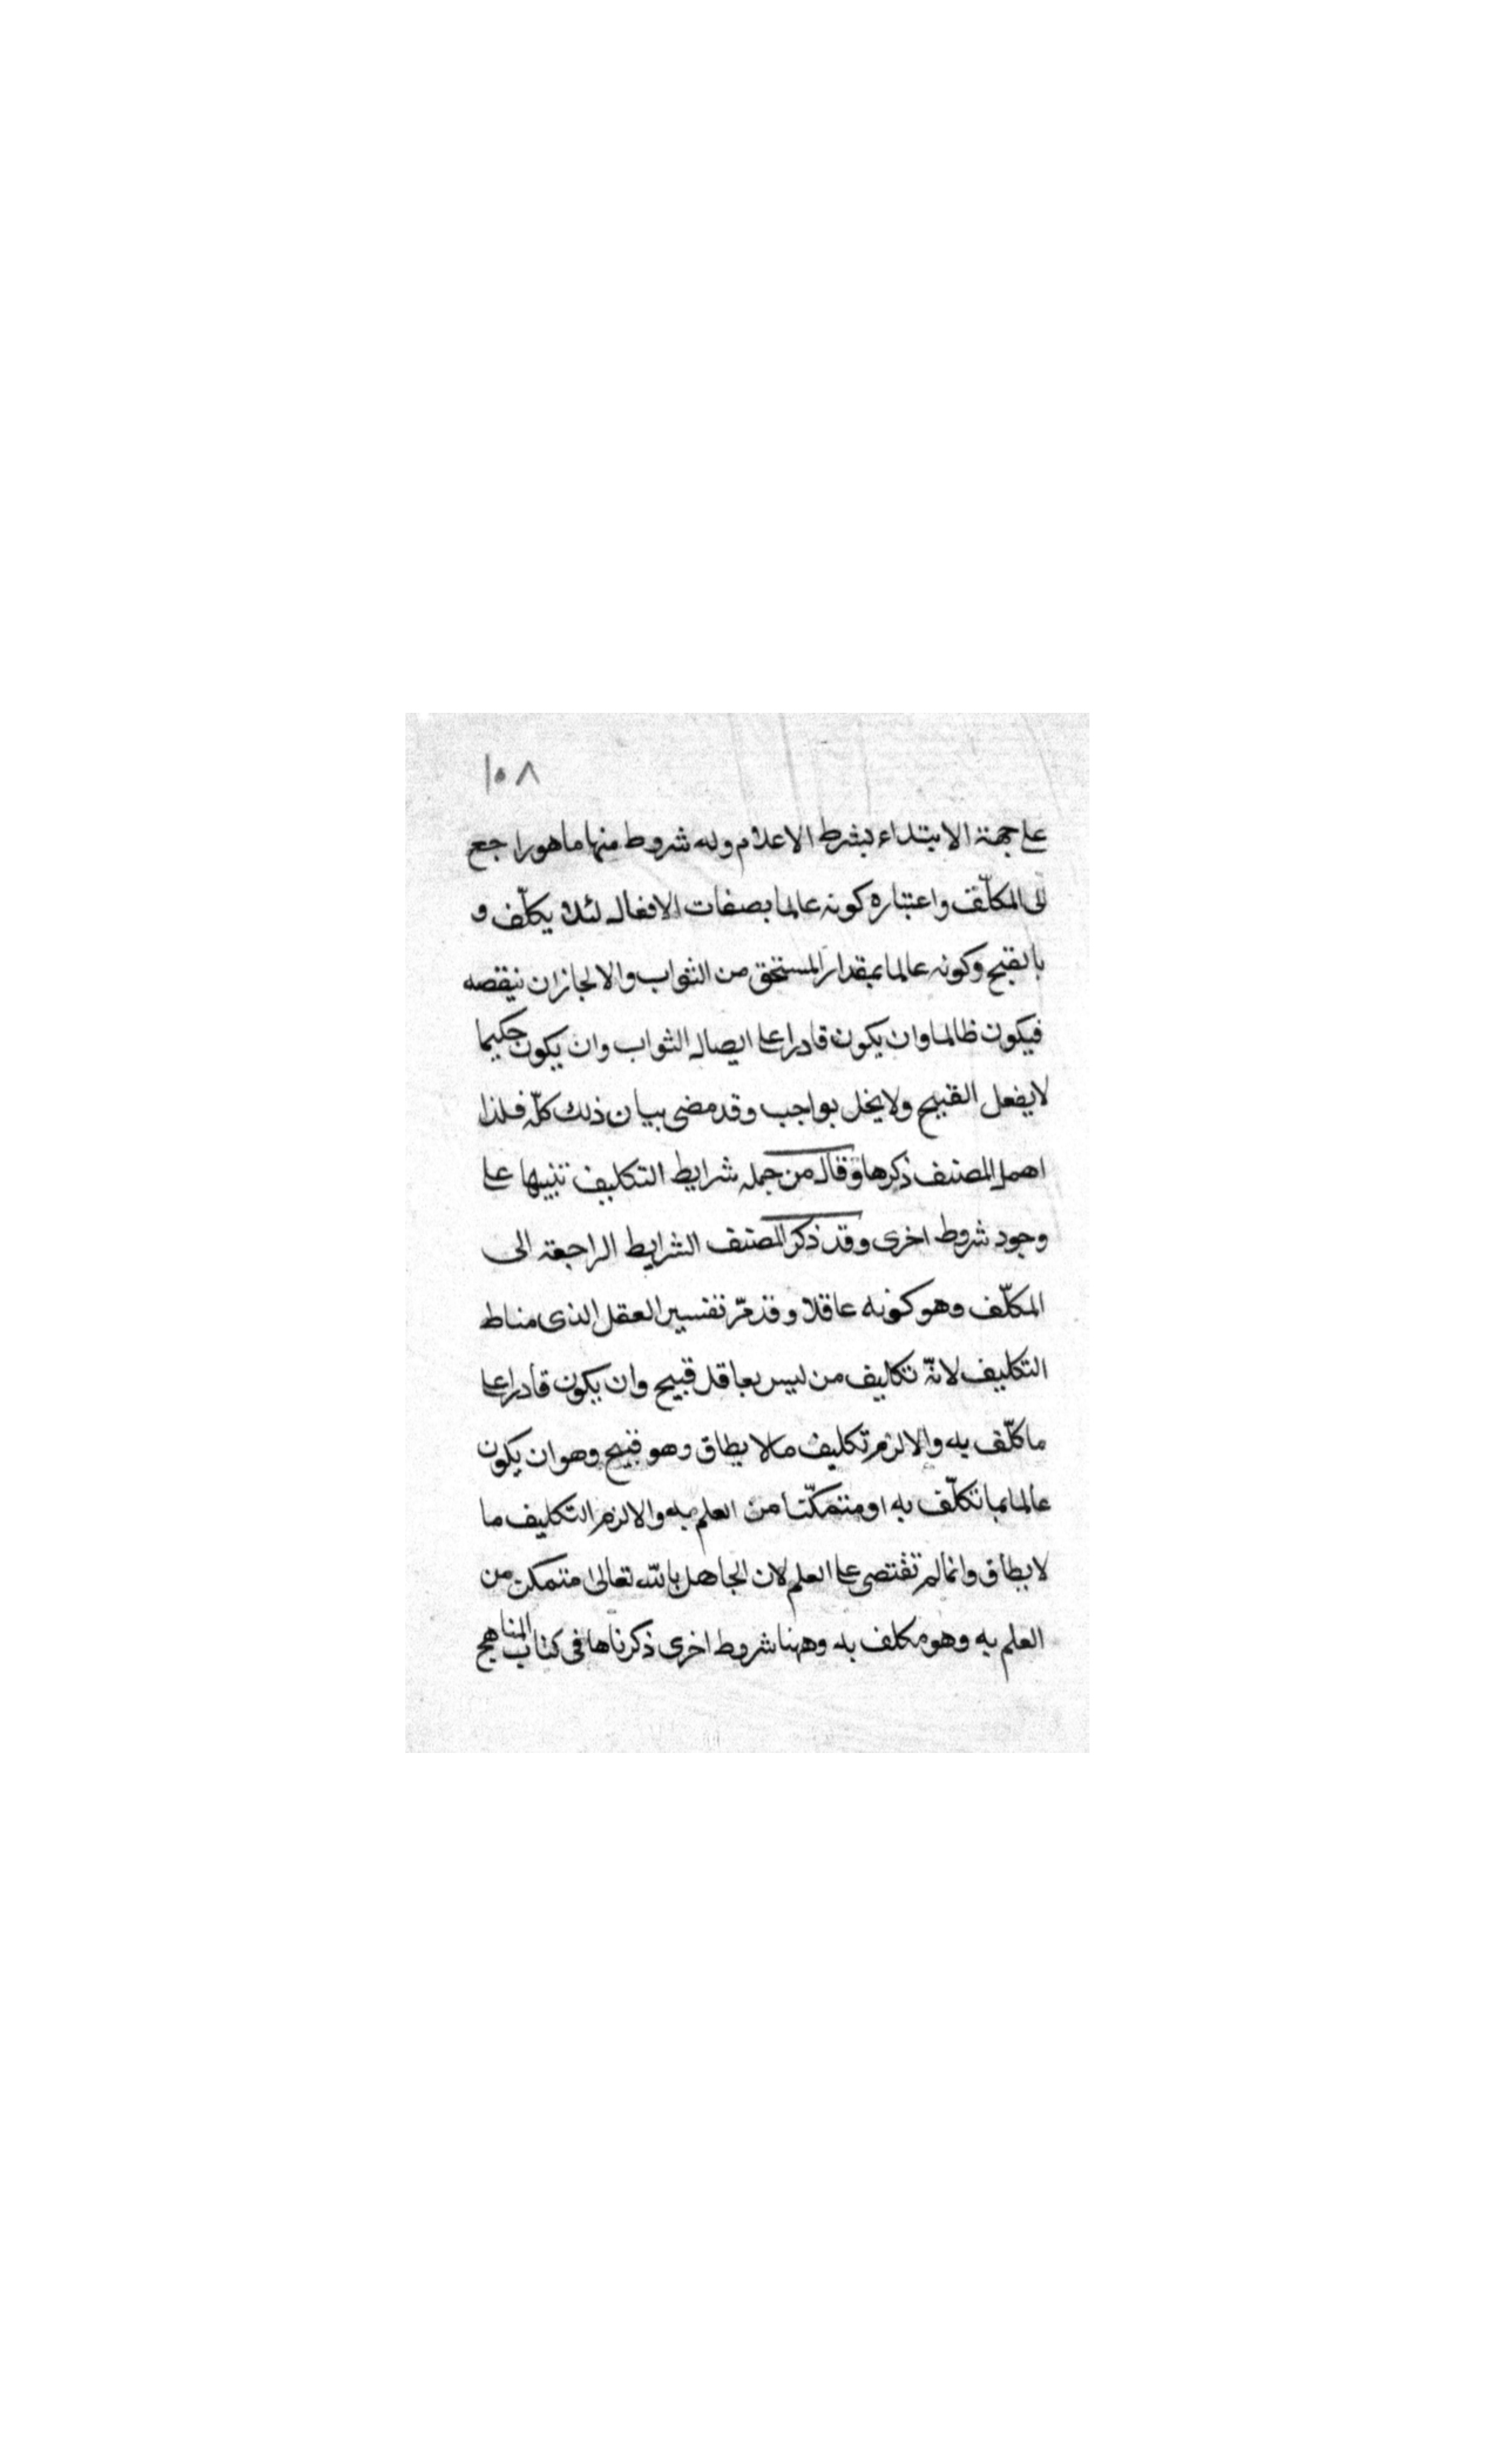 ١٥٨
على جهة الابتداء بشرط الاعلام وله شروط منها ما هو راجع
الى المكلّف واعتباره كونه عالما بصفات الافعال لئلا يكلّف و
بالقبح وكونه عالما بمقدار المستحق من الثواب والا لجاز ان ينقصه
فيكون ظالما وان يكون قادرا على ايصال الثواب وان يكون حكيما
لا يفعل القبيح ولا يخل بواجب وقد مضى بيان ذلك كلّه فلذا
اهمل المصنف ذكرها وقال من جمله شرايط التكليف تنبيها على
وجود شروط اخرى وقد ذكر المصنف الشرايط الراجعة الى
المكلّف وهو كونه عاقلا وقد مرّ تفسير العقل الذى مناط
التكليف لانّه تكليف من ليس بعاقل قبيح وان يكون قادرا على
ما كلّف به والا لزم تكليف ما لا يطاق وهو قبيح وهو ان يكون
عالما بما تكلّف به او متمكّنا من العلم به والا لزم التكليف ما
لا يطاق وانما لم تقتصى على العلم لان الجاهل بالله تعالى متمكن من
العلم به وهو مكلف به وههنا شروط اخرى ذكرناها فى كتاب المناهج